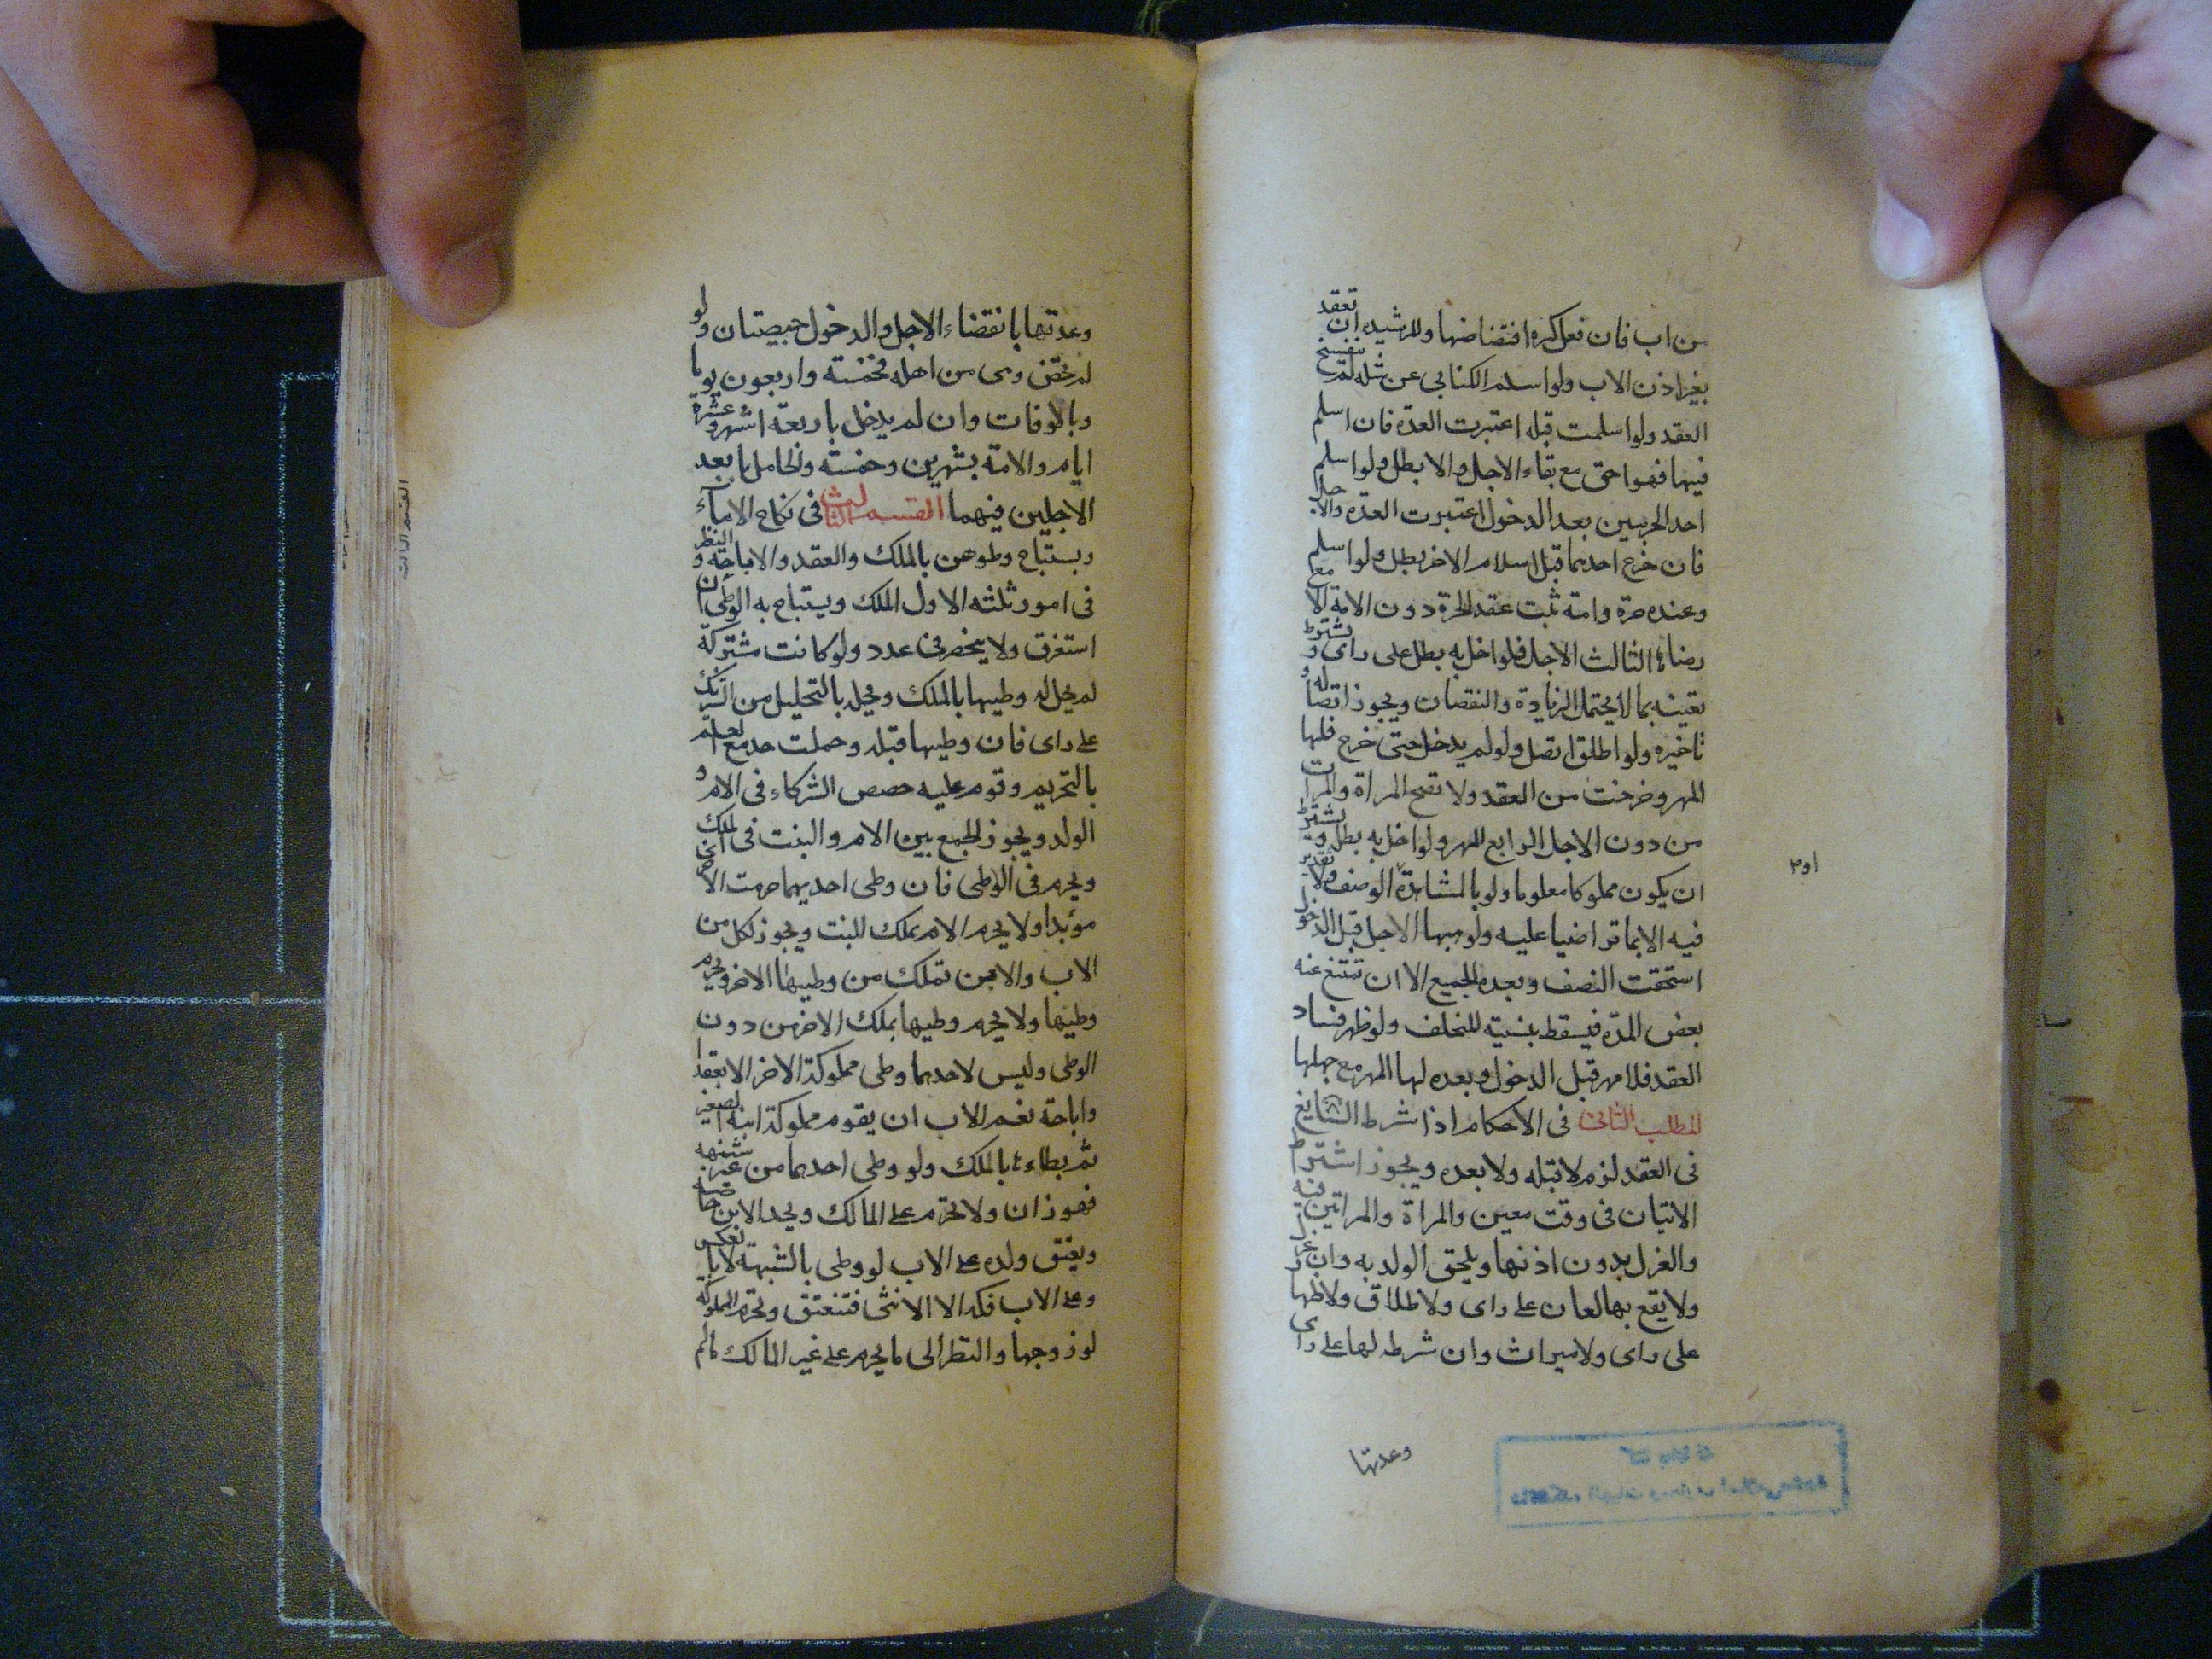 من اب فان فعل كره افتضاضها وللرشيده ان تعقد
بغير اذن الاب ولو اسلم الكتابى عن مثله لم ينفسخ
العقد ولو اسلمت قبله اعتبرت العدة فان اسلم
فيها فهو احق مع بقاء الاجل والا بطل ولو اسلم
احد الحربيين بعد الدخول اعتبرت العدة والا
فان خرج احدهما قبل اسلام الاخر بطل ولو اسلم
وعنده حرة وامة ثبت عقد الحرة دون الامة الا مع
رضاء الثالث الاجل فلو اخل به بطل على راى و يشترط
تعينه بما لا يحتمل الزيادة والنقصان ويجوز اتصاله و
تاخيره ولو اطلق اتصل ولو لم يدخل حتى خرج فلها
المهر وخرجت من العقد ولا تصح المراة والمرات
من دون الاجل الرابع المهر ولو اخل به بطل ويشترط
ان يكون مملوكا معلوما ولو بالمشاهدة الوصف ولا تقدير
فيه الا بما تراضيا عليه ولو وهبها الاجل قبل الدخول
استحقت النصف وبعده الجميع الا ان تمتنع عنه
بعض المدة فيسقط بنسبة المتخلف ولو ظهر فساد
العقد فلا مهر قبل الدخول وبعده لها المهر مع جهلها
المطلب الثانى فى الاحكام اذا شرط السايغ
فى العقد لزم لا قبله ولا بعده ويجوز اشتراط
الاتيان فى وقت معين والمراة والمراتين فيه
والعزل بدون اذنها ويلحق الولد به وان عزل
ولا يقع بها لعان على راى ولا طلاق ولا ظهار
على راى ولا ميراث وان شرطه لها على راى
وعدتها
وعدتها بانقضاء الاجل والدخول حيضتان ولو
لم تحض وهى من اهله فخمسة واربعون يوما
وبالوفات وان لم يدخل باربعة اشهر وعشرة
ايام والامة بشهرين وخمسة والحامل بابعد
الاجلين فيهما القسم الثالث فى نكاح الاماء
ويستباح وطوهن بالملك والعقد والاباحة والنظر
فى امور ثلثه الاول الملك ويستباح به الوطى ان
استغرق ولا ينحصر فى عدد ولو كانت مشتركة
لم يحل له وطيها بالملك ويحل بالتحليل من الشريك
على راى فان وطيها قبله وحملت حد مع العلم
بالتحريم وقوم عليه حصص الشركاء فى الام و
الولد ويجوز الجمع بين الام والبنت فى الملك
ويحرم فى الوطى فان وطى احديهما حرمت الاخرى
مؤبدا ولا يحرم الام بملك البنت ويجوز لكل من
الاب والابن تملك من وطيها الاخر ويحرم
وطيها ولا يحرم وطيها بملك الاخر من دون
الوطى وليس لاحدهما وطى مملوكة الاخر الا بعقد
واباحة نعم الاب ان يقوم مملوكة ابنه الصغير
ثم يطاءها بالملك ولو وطى احدهما من غير شبهه
فهو زان ولا تحرم على المالك ويحد الابن خاصة
ويعتق ولده على الاب لو وطى بالشبهة لا بالعكس
وعلى الاب فكه الا الانثى فتنعتق وتحرم المملوكة
لو زوجها والنظر الى ما يحرم على غير المالك ما لم